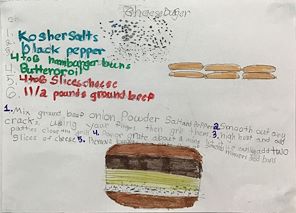 Cheese burger
1. Kosher salts
2. black pepper
3. 4 to 6 hamburger buns
4. Butter or oil
5. 4 to 6 Slices cheese
6. 1 1/2 pounds ground beef
1. Mix ground beef onion Powder Salt and Pepper 2. smooth out any
cracks using your finger then grill them 3. high heat and add
patties close the grill 4. about a more add two
Slices of cheese 5. Remove and buns